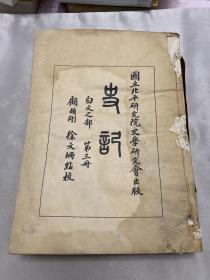 國立北平研究院史學研究會出版
史記
白文之部 第三冊
顧頡剛 徐文珊點校